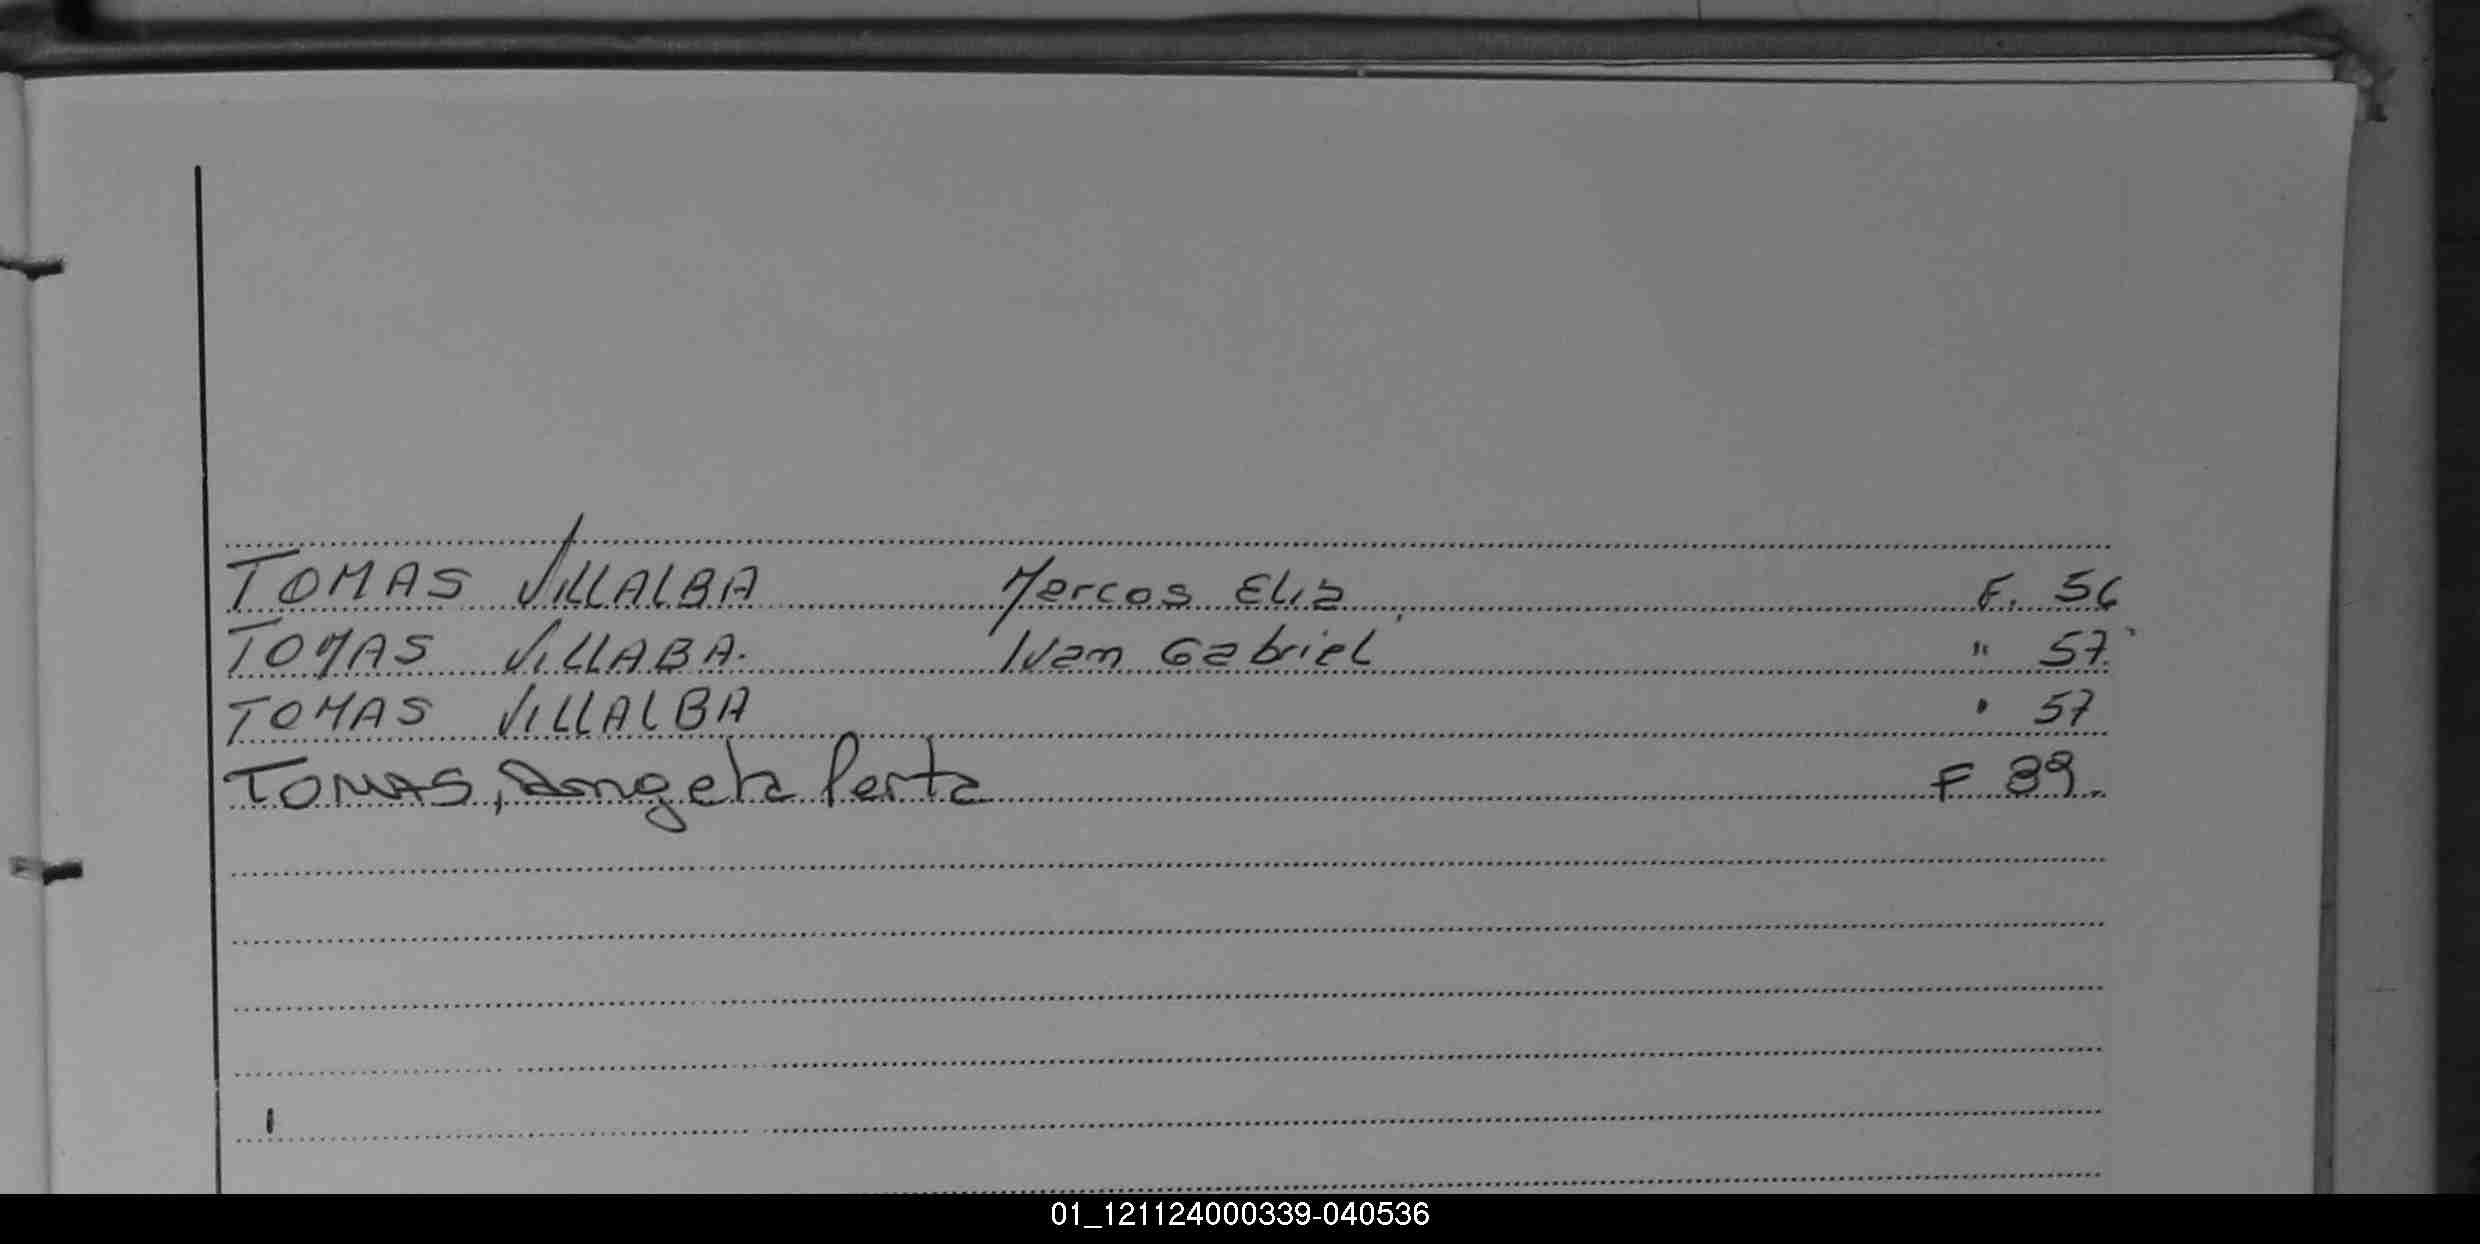 TOMAS VILLALBA Marcos Elia F. 56
TOMAS VILLABA. Ivan Gabriel " 57.
TOMAS VILLALBA " 57
TOMAS, Angela Perta F 89.
01_121124000339-040536